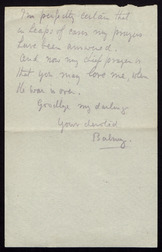 I'm perfectly certain that
in heaps of cases my prayers
have been answered.
And now my chief prayer is
that you may love me, when
the war is over.
Goodbye my darling
Your devoted